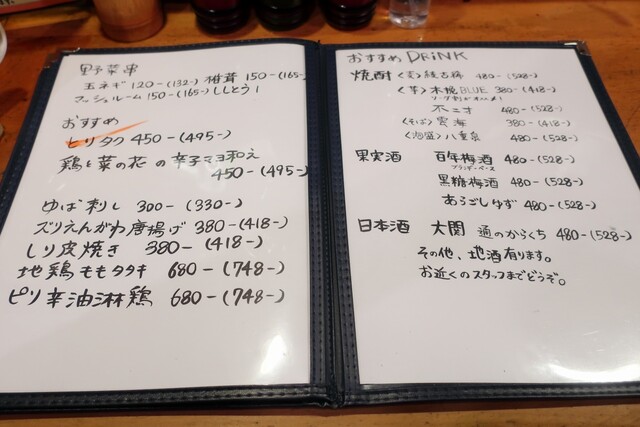 野菜串
玉ネギ 120-(132-) 椎茸 150-(165-
マッシュルーム 150-(165-) ししとう 1
おすすめ
トリタク 450-(495-)
鶏と菜の花の辛子マヨ和え
450-(495-)
ゆば刺し 300-(330-)
ズリえんがわ唐揚げ 380-(418-)
しり皮焼き 380-(418-)
地鶏ももタタキ 680-(748-)
ピリ辛油淋鶏 680-(748-)
おすすめ DRiNK
焼酎 <麦> 綾古稀 480-(528-)
<芋> 木挽BLUE 380-(418-)
ソーダ割がオススメ!
不二才 480-(528-)
<そば> 雲海 380-(418-)
<泡盛> 八重泉 480-(528-)
果実酒 百年梅酒 480-(528-)
ブランデーベース
黒糖梅酒 480-(528-)
あらごしゆず 480-(528-)
日本酒 大関 通のからくち 480-(528-)
その他、地酒有ります。
お近くのスタッフまでどうぞ。